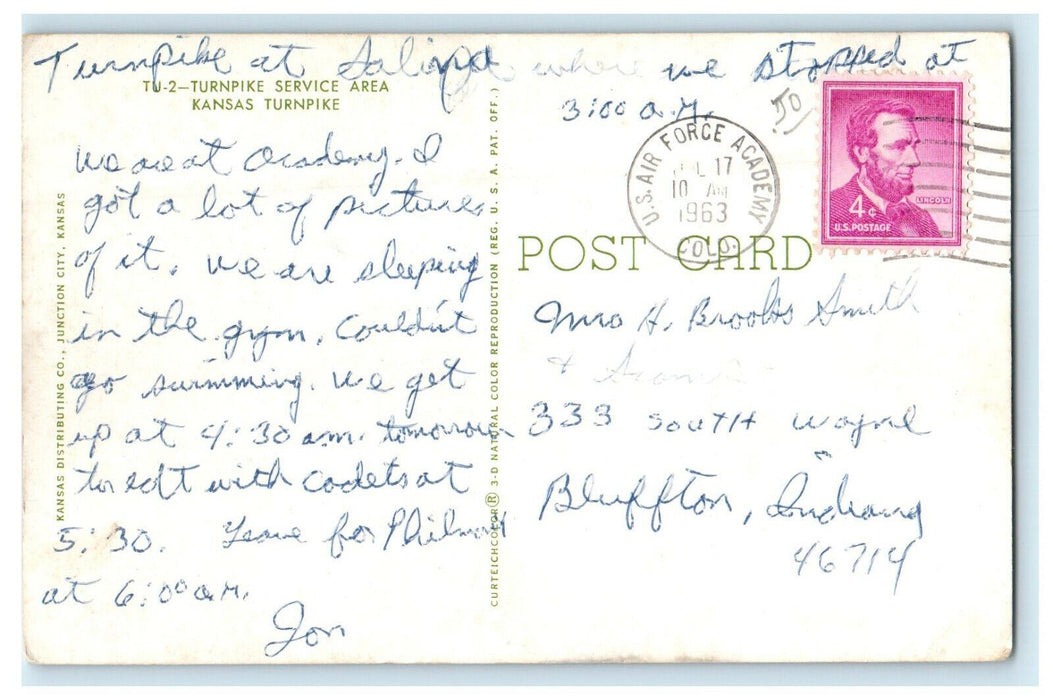 Turnpike at Salina where we stopped at
3:00 a.m.
TU-2—TURNPIKE SERVICE AREA
KANSAS TURNPIKE
We are at Academy. I
got a lot of pictures
of it. We are sleeping
in the gym. Couldn't
go swimming. We get
up at 4:30 am. tomorrow
to eat with cadets at
5:30. Leave for Philmont
at 6:00 a.m.
Jon
KANSAS DISTRIBUTING CO., JUNCTION CITY, KANSAS
CURTEICHCOLOR® 3-D NATURAL COLOR REPRODUCTION (REG. U. S. A. PAT. OFF.)
50
U.S. AIR FORCE ACADEMY
17
10 AM
1963
COLO.
LINCOLN
4¢
U.S. POSTAGE
POST CARD
Mrs H. Brooks Smith
&
333 South Wayne
Bluffton, Indiana
46714